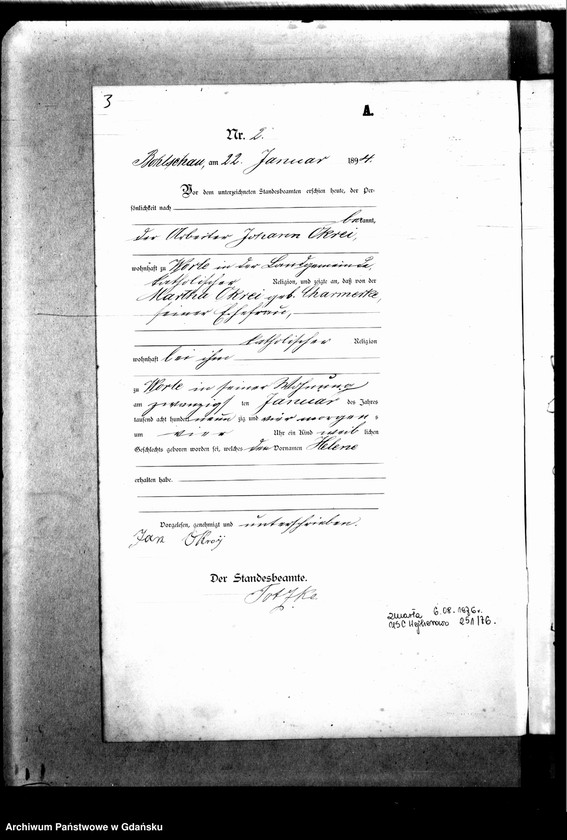 3
A.
Nr. 2.
Bohlschau, am 22. Januar 1894.
Vor dem unterzeichneten Standesbeamten erschien heute, der Per-
sönlichkeit nach
bekannt,
der Arbeiter Johann Okrei,
wohnhaft zu Worle in der Landgemeinde,
katholischer Religion, und zeigte an, daß von der
Martha Okrei geb. Charmerke,
seiner Ehefrau,
katholischer Religion
wohnhaft bei ihm
zu Worle in seiner Wohnung
am zwanzigsten Januar des Jahres
tausend acht hundert neunzig und vier morgens
um vier Uhr ein Kind weiblichen
Geschlechts geboren worden sei, welches den Vornamen Helene
erhalten habe.
Vorgelesen, genehmigt und unterschrieben.
Jan Okroÿ
Der Standesbeamte.
zmarła 6.08.1976 r.
USC Wejherowo 251/76.
Archiwum Państwowe w Gdańsku